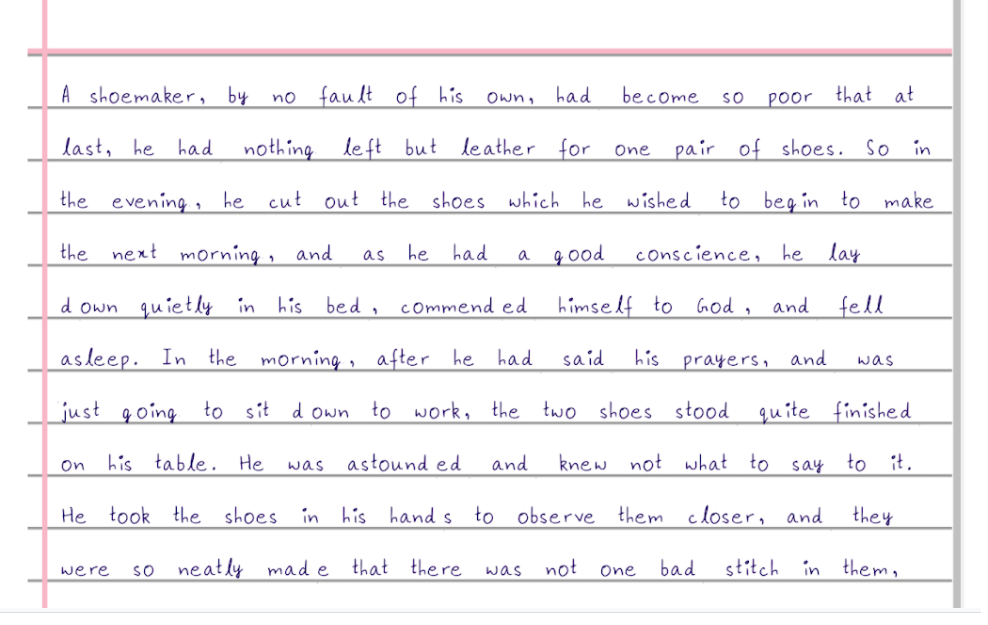 A shoemaker, by no fault of his own, had become so poor that at
last, he had nothing left but leather for one pair of shoes. So in
the evening, he cut out the shoes which he wished to begin to make
the next morning, and as he had a good conscience, he lay
down quietly in his bed, commended himself to God, and fell
asleep. In the morning, after he had said his prayers, and was
just going to sit down to work, the two shoes stood quite finished
on his table. He was astounded and knew not what to say to it.
He took the shoes in his hands to observe them closer, and they
were so neatly made that there was not one bad stitch in them,